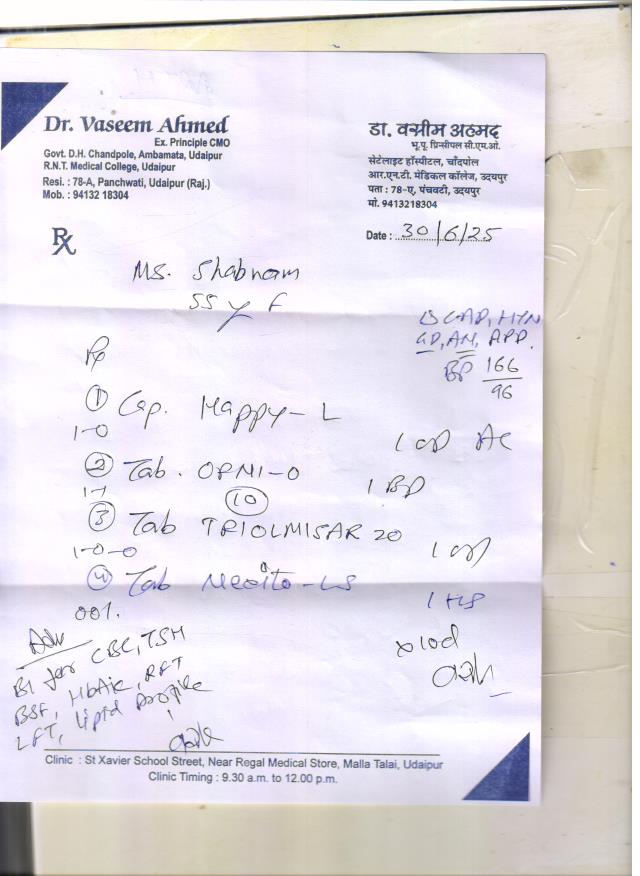 Dr. Vaseem Ahmed
Ex. Principle CMO
Govt. D.H. Chandpole, Ambamata, Udaipur
R.N.T. Medical College, Udaipur
Resi. : 78-A, Panchwati, Udaipur (Raj.)
Mob. : 94132 18304
डा. वसीम अहमद
भू.पू. प्रिन्सीपल सी.एम.ओ.
सेटेलाइट हॉस्पीटल, चाँदपोल
आर.एन.टी. मेडिकल कॉलेज, उदयपुर
पता : 78-ए, पंचवटी, उदयपुर
मो. 9413218304
Rx
Date : 30/6/25
Ms. Shabnam
55 y F
CAD, HTN
GD, AN, APD.
BP 166/96
Rx
① Cap. Happy-L
1-0
1 OD AC
② Tab. OPNI-O
1-1
1 BD
10
③ Tab TRIOLMISAR 20
1-0-0
1 OD
④ Tab -LS
001.
1 HS
x 10d
Adv
Bl for CBC, TSH
BSF, HbA1c, RFT
LFT, Lipid Profile
Clinic : St Xavier School Street, Near Regal Medical Store, Malla Talai, Udaipur
Clinic Timing : 9.30 a.m. to 12.00 p.m.